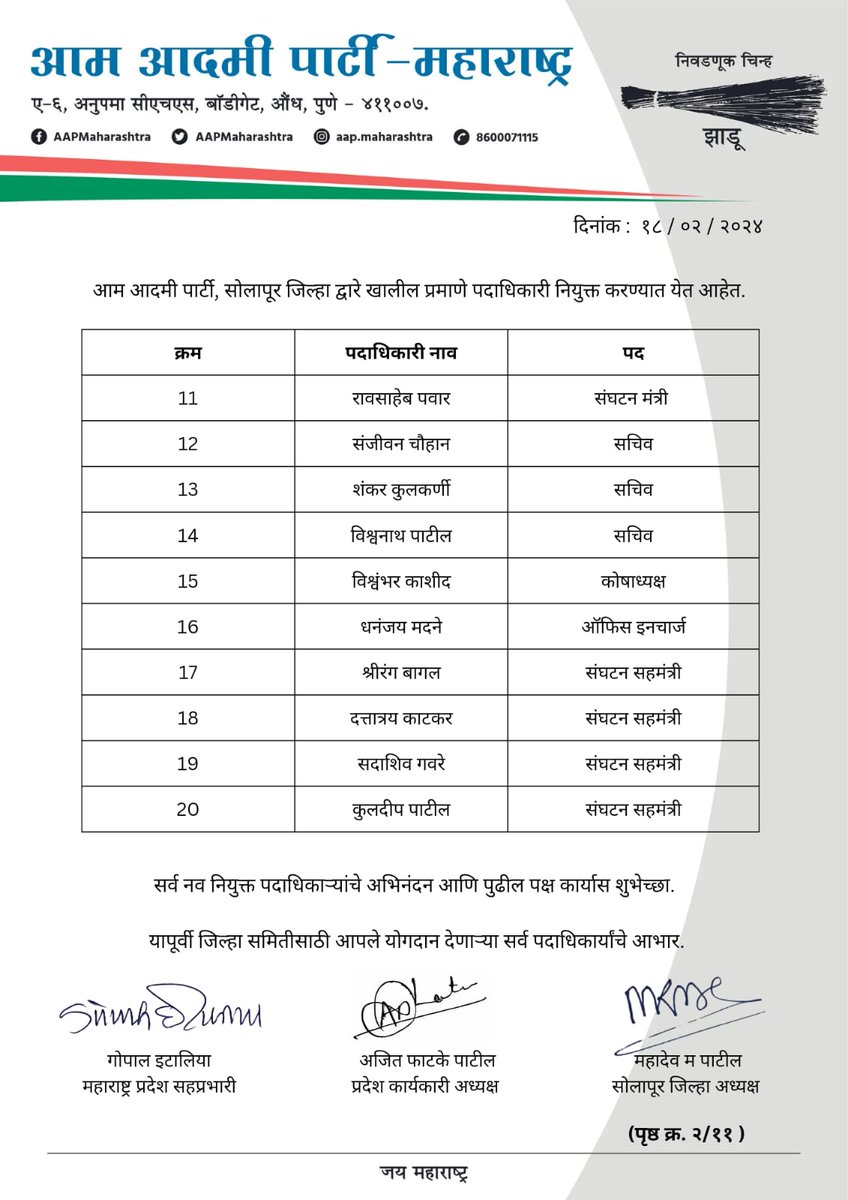 आम आदमी पार्टी-महाराष्ट्र
ए-६, अनुपमा सीएचएस, बॉडीगेट, औंध, पुणे - ४११००७.
AAPMaharashtra AAPMaharashtra aap.maharashtra 8600071115
निवडणूक चिन्ह
झाडू
दिनांक : १८ / ०२ / २०२४
आम आदमी पार्टी, सोलापूर जिल्हा द्वारे खालील प्रमाणे पदाधिकारी नियुक्त करण्यात येत आहेत.
क्रम पदाधिकारी नाव पद
11 रावसाहेब पवार संघटन मंत्री
12 संजीवन चौहान सचिव
13 शंकर कुलकर्णी सचिव
14 विश्वनाथ पाटील सचिव
15 विश्वंभर काशीद कोषाध्यक्ष
16 धनंजय मदने ऑफिस इनचार्ज
17 श्रीरंग बागल संघटन सहमंत्री
18 दत्तात्रय काटकर संघटन सहमंत्री
19 सदाशिव गवरे संघटन सहमंत्री
20 कुलदीप पाटील संघटन सहमंत्री
सर्व नव नियुक्त पदाधिकाऱ्यांचे अभिनंदन आणि पुढील पक्ष कार्यास शुभेच्छा.
यापूर्वी जिल्हा समितीसाठी आपले योगदान देणाऱ्या सर्व पदाधिकार्यांचे आभार.
गोपाल इटालिया अजित फाटके पाटील महादेव म पाटील
महाराष्ट्र प्रदेश सहप्रभारी प्रदेश कार्यकारी अध्यक्ष सोलापूर जिल्हा अध्यक्ष
(पृष्ठ क्र. २/११ )
जय महाराष्ट्र